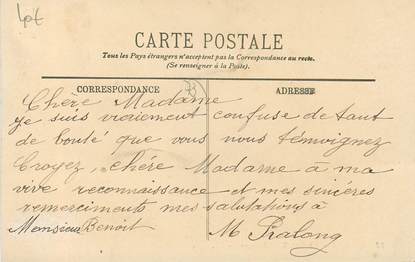 4pt
CARTE POSTALE
Tous les Pays étrangers n'acceptent pas la Correspondance au recto.
(Se renseigner à la Poste).
CORRESPONDANCE
ADRESSE
Chère Madame
je suis vraiement confuse de tant
de bonté que vous nous témoignez
Croyez, chère Madame à ma
vive reconnaissance et mes sincères
remerciments mes salutations à
Monsieur Benoit M Pralong